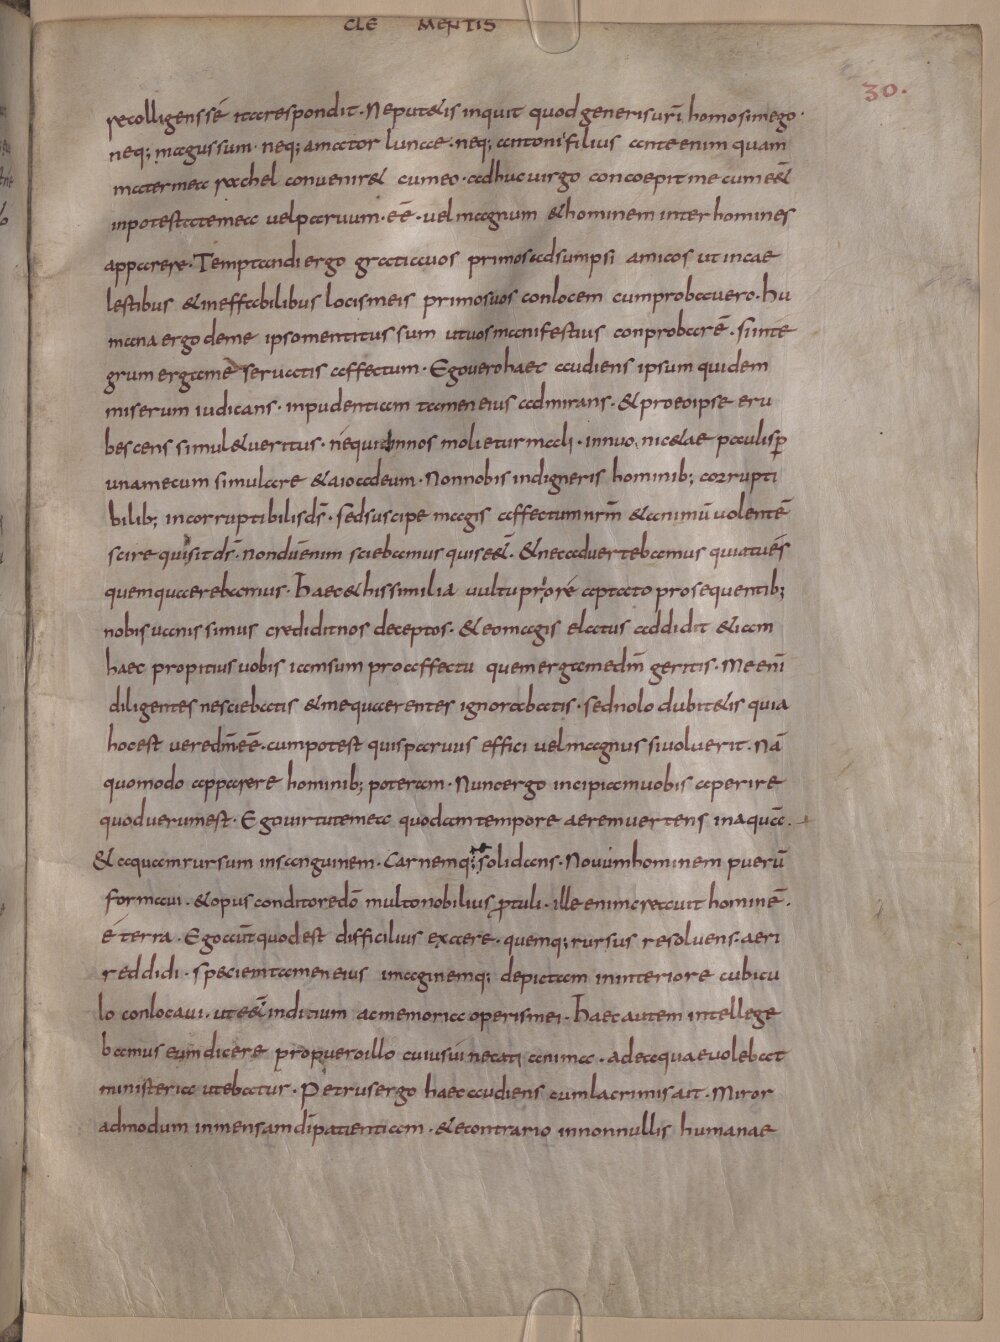 CLE MENTIS
30.
recolligens sé ita respondit. Ne putetis inquit quod generis uri̅ homo sim ego.
neq; magus sum. neq; amator lunae. neq; antonii filius ante enim quam
mater mea rachel conveniret cum eo. adhuc virgo concoepit me cum ee̅t
in potestate mea vel parvum. ee̅. vel magnum & hominem inter homines
apparere. Temptandi ergo gratia vos primos adsumpsi amicos ut in cae
lestibus & ineffabilibus locis meis primos vos conlocem cum probavero. hu
mana ergo de me ipso mentitus sum ut vos manifestius conprobare̅. si inte
grum erga me̅ servatis affectum. Ego vero haec audiens ipsum quidem
miserum iudicans. inpudentiam tamen eius admirans. & pro eo ipse eru
bescens simul & veritus. ne quid in nos molietur mali. innuo nicetae paulisp̅
una mecum simulare & aio ad eum. Non nobis indigneris hominib; corrupti
bilib; incorruptibilis ds̅. sed suscipe magis affectum nr̅m & animu̅ volente̅
scire quis sit ds̅. nondu̅ enim sciebamus quis ee̅t. & nec advertebamus quia tu és
quem quaerebamus. Haec & his similia vultu pro re aptato prosequentib;
nobis vanissimus credidit nos deceptos. & eo magis elatus addidit & iam
haec propitius vobis iam sum pro affectu quem erga me dm̅ geritis. Me eni̅
diligentes nesciebatis & me quaerentes ignorabatis. sed nolo dubitetis quia
hoc est vere dm̅ ee̅. cum potest quis parvus effici vel magnus si voluerit. Na̅
quomodo apparere hominib; poteram. Nunc ergo incipiam vobis aperire
quod verum est. Ego virtute mea quodam tempore aerem vertens in aqua̅.
& aquam rursum in sanguinem. Carnemq; solidans. Novum hominem pueru̅
formavi. & opus conditore do̅ multo nobilius p̅tuli. ille enim creavit homine̅.
é terra. Ego aut̅ quod est difficilius ex aere. quemq; rursus resolvens. aeri
reddidi. speciem tamen eius imaginemq; depictam in interiore cubicu
lo conlocavi. ut ee̅t indicium ac memoria operis mei. Haec autem intellege
bamus eum dicere pro puero illo cuius vi necati anima. ad ea quae volebat
ministeria utebatur. Petrus ergo haec audiens cum lacrimis ait. Miror
admodum inmensam di̅ patientiam. & e contrario in nonnullis humanae